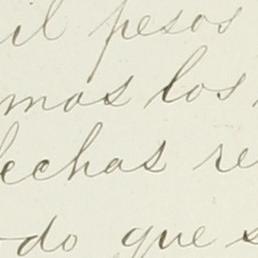 il pesos
mos los
echas re
do que s